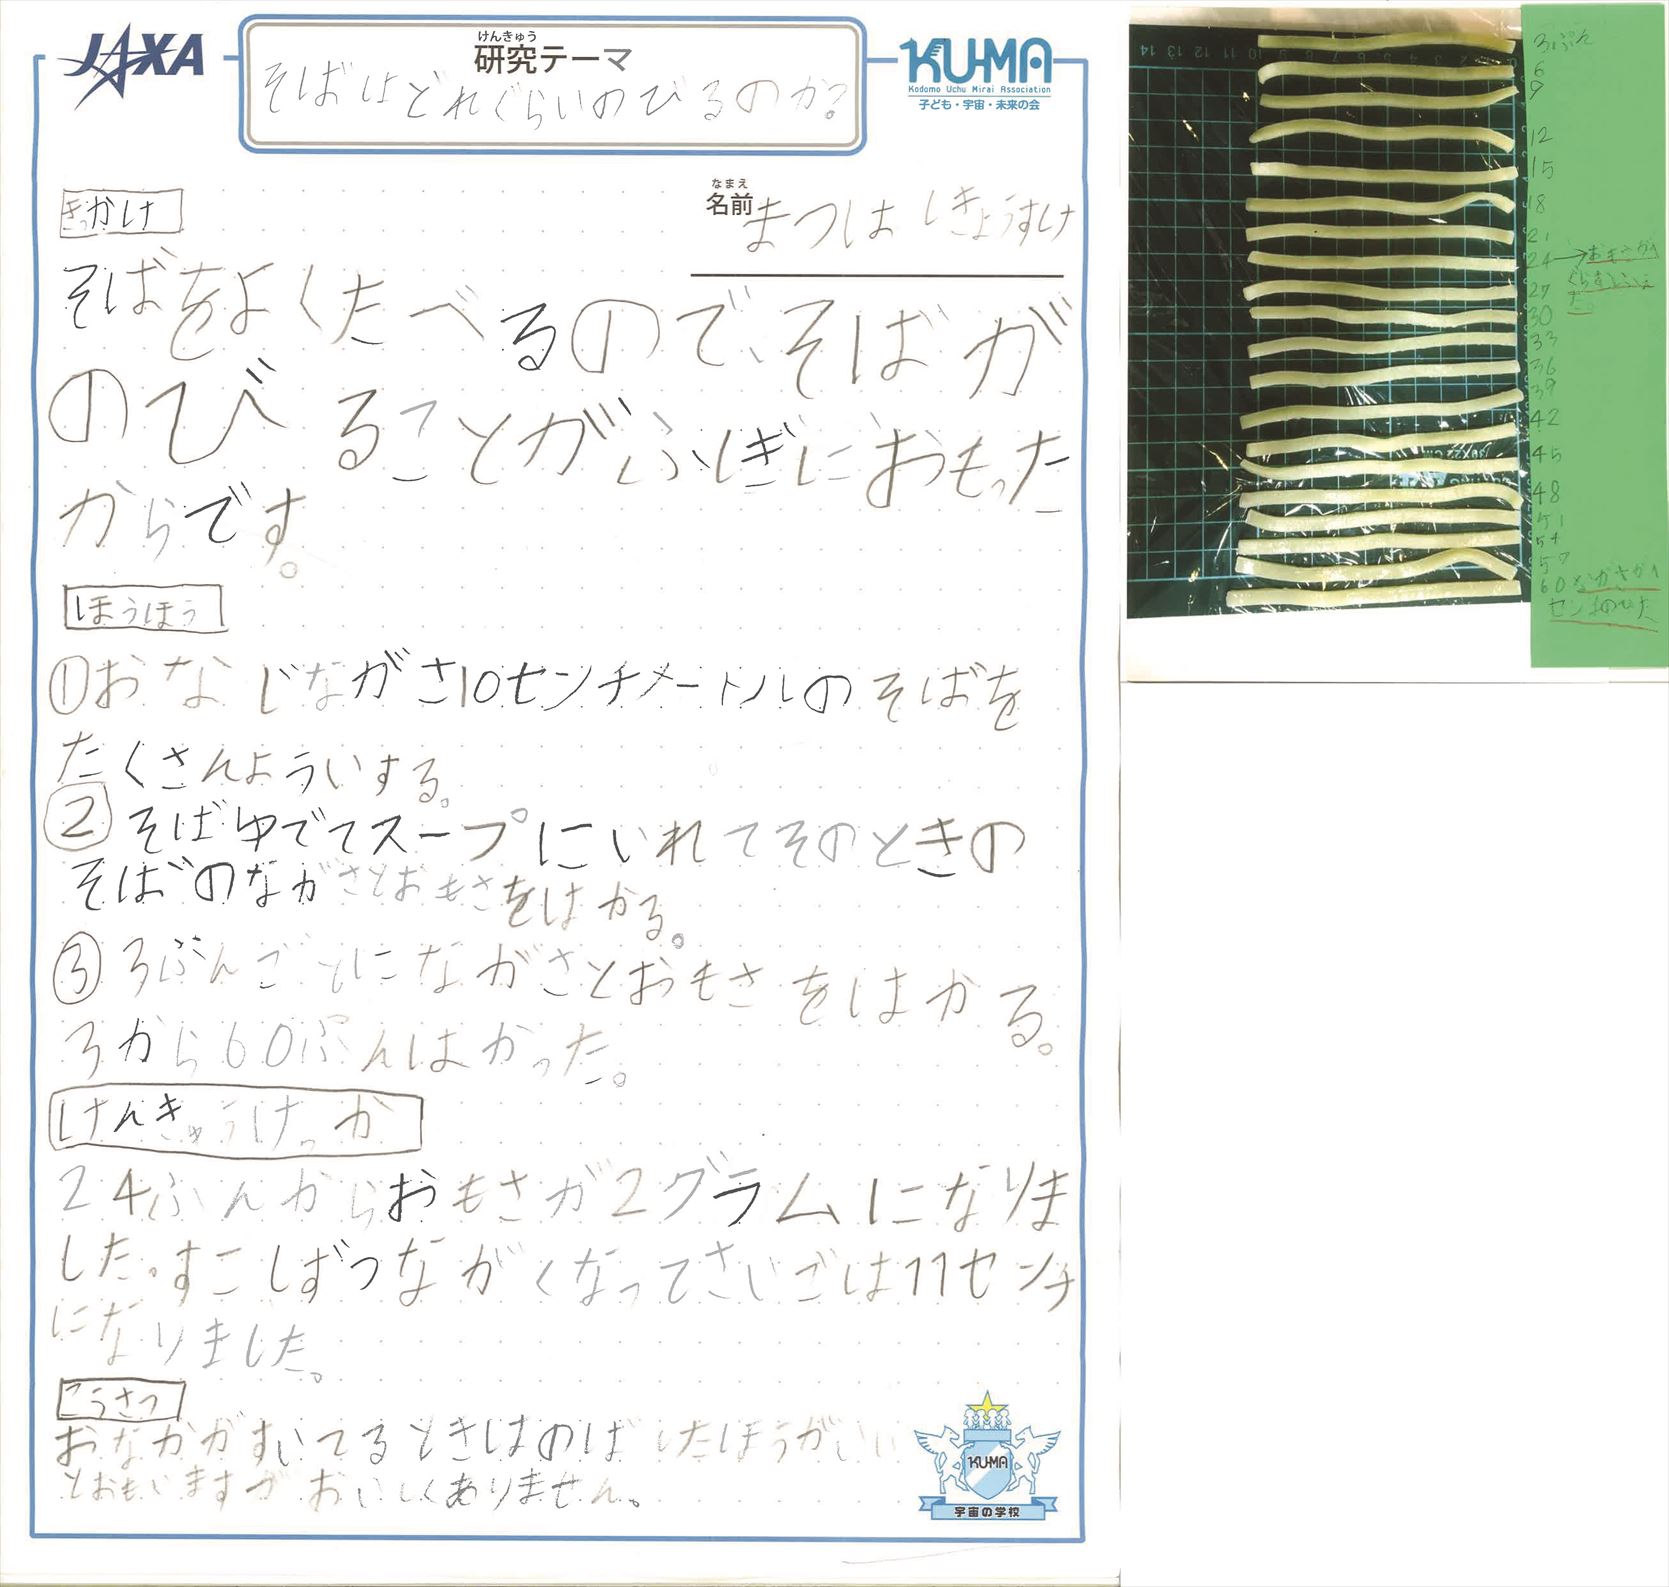 JAXA
けんきゅう
研究テーマ
そばはどれぐらいのびるのか?
KU-MA
Kodomo Uchu Mirai Association
子ども・宇宙・未来の会
きっかけ
なまえ
名前 まつは しきょうすけ
そばをよくたべるので、そばが
のびることがふしぎにおもった
からです。
ほうほう
①おなじながさ10センチメートルのそばを
たくさんよういする。
②そばゆでてスープにいれてそのときの
そばのながさとおもさをはかる。
③3ぷんごとにながさとおもさをはかる。
3から60ぷんはかった。
けんきゅうけっか
24ふんからおもさが2グラムになりま
した。すこしずつながくなってさいごは11センチ
になりました。
こうさつ
おなかがすいてるときはのばしたほうがいい
とおもいますがおいしくありません。
KU-MA
宇宙の学校
3ぷん
6
9
12
15
18
21
24→おもさが1
ぐらむふえ
た。
27
30
33
36
39
42
45
48
51
54
57
60 ながさが1
センチのびた